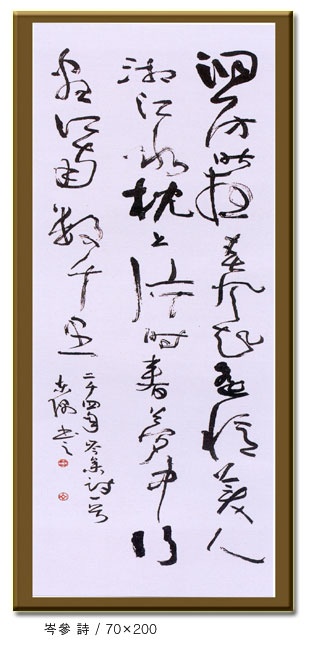 洞房昨夜春風起遙憶美人
湘江水枕上片時春夢中行
盡江南數千里
二千四年岑參詩一首
書之
岑參 詩 / 70×200